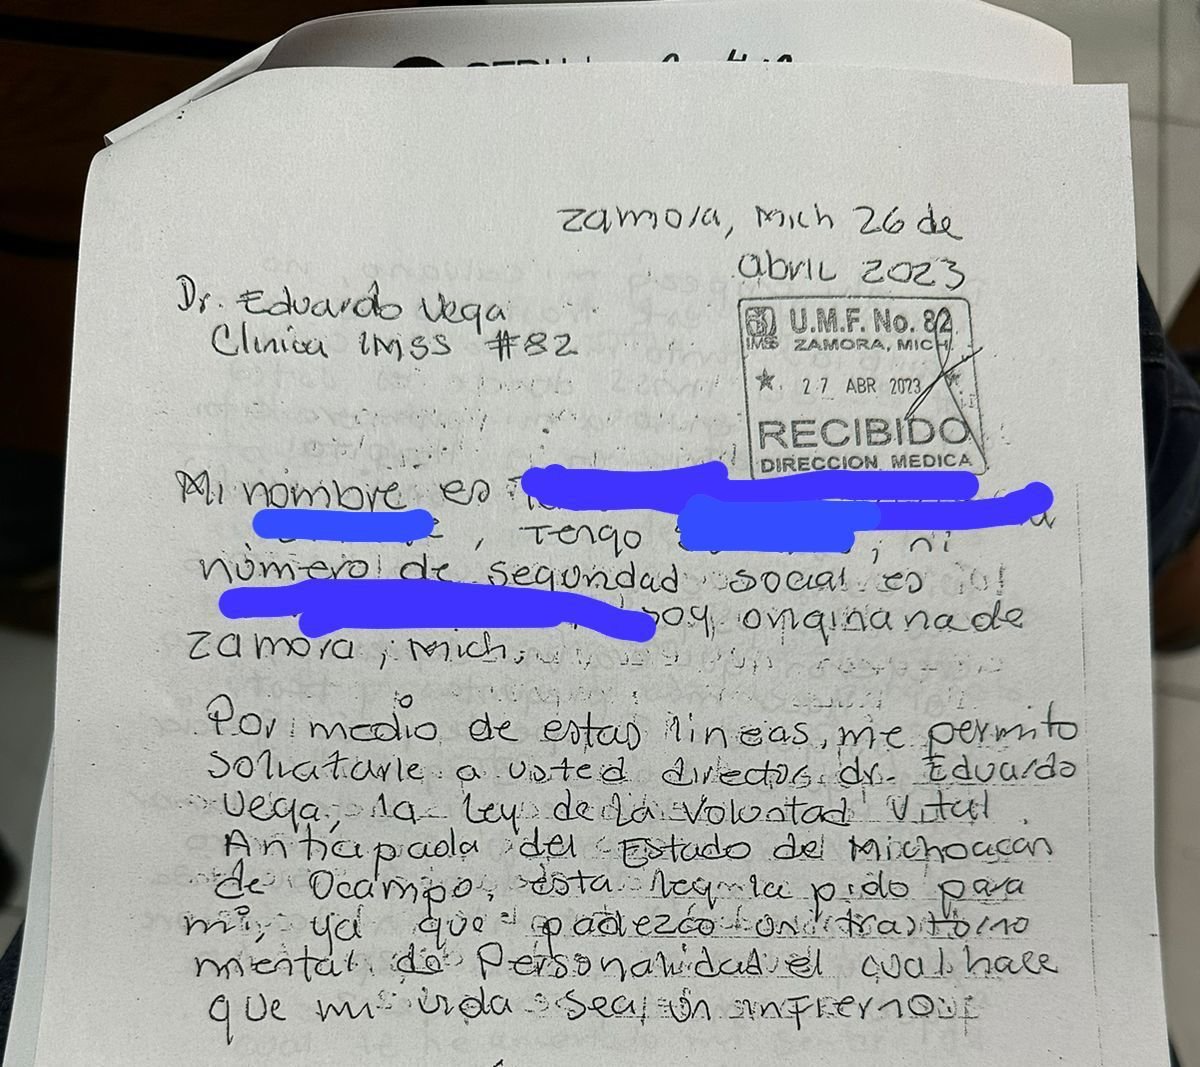 Zamora, Mich 26 de
abril 2023
Dr. Eduardo Vega
Clinica IMSS #82
IMSS
U.M.F. No. 82
ZAMORA, MICH.
27 ABR 2023
RECIBIDO
DIRECCION MEDICA
Mi nombre es
, Tengo
número de seguridad social es
soy originaria de
Zamora, Mich.
Por medio de estas lineas, me permito
solicitarle a usted director dr. Eduardo
Vega, la Ley de la Voluntad Vital
Anticipada del Estado de Michoacan
de Ocampo, ésta ley la pido para
mi, ya que padezco un trastorno
mental de Personalidad el cual hace
que mi vida sea un infierno